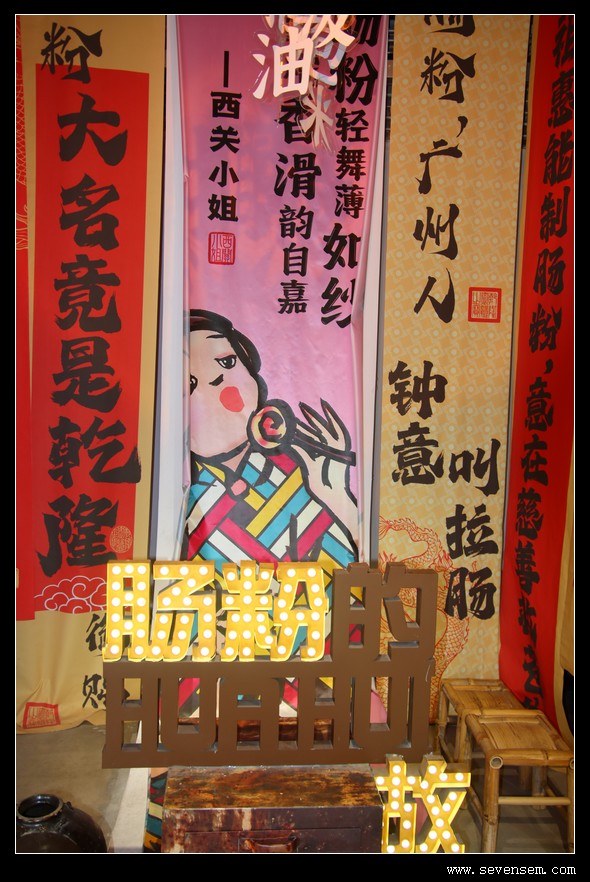 粉
大名竟是乾隆
御赐
油
粉轻舞薄如纱
香滑韵自嘉
—西关小姐
西关小姐
肠粉，广州人
钟意
叫拉肠
祖惠能制肠粉，意在慈善
肠粉的
故
www.sevensem.com